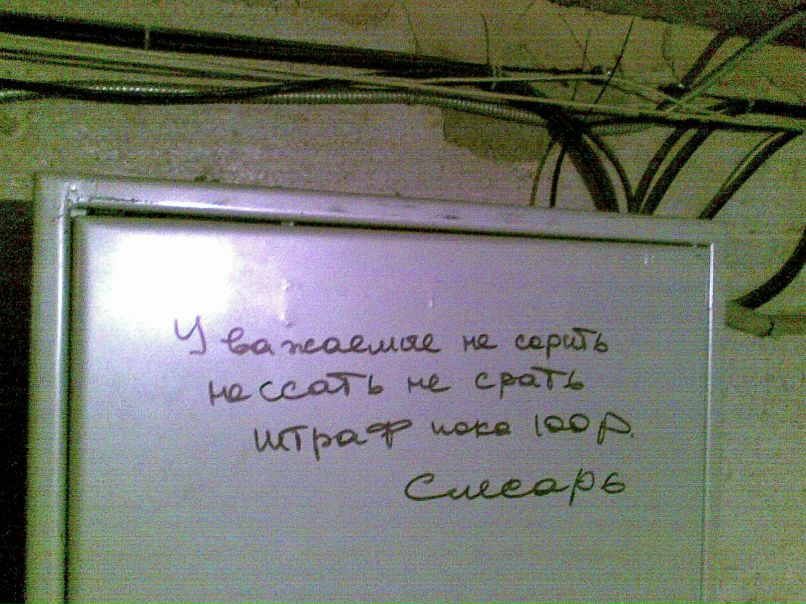 Уважаемые не сорить
не ссать не срать
штраф пока 100 р.
Слесарь